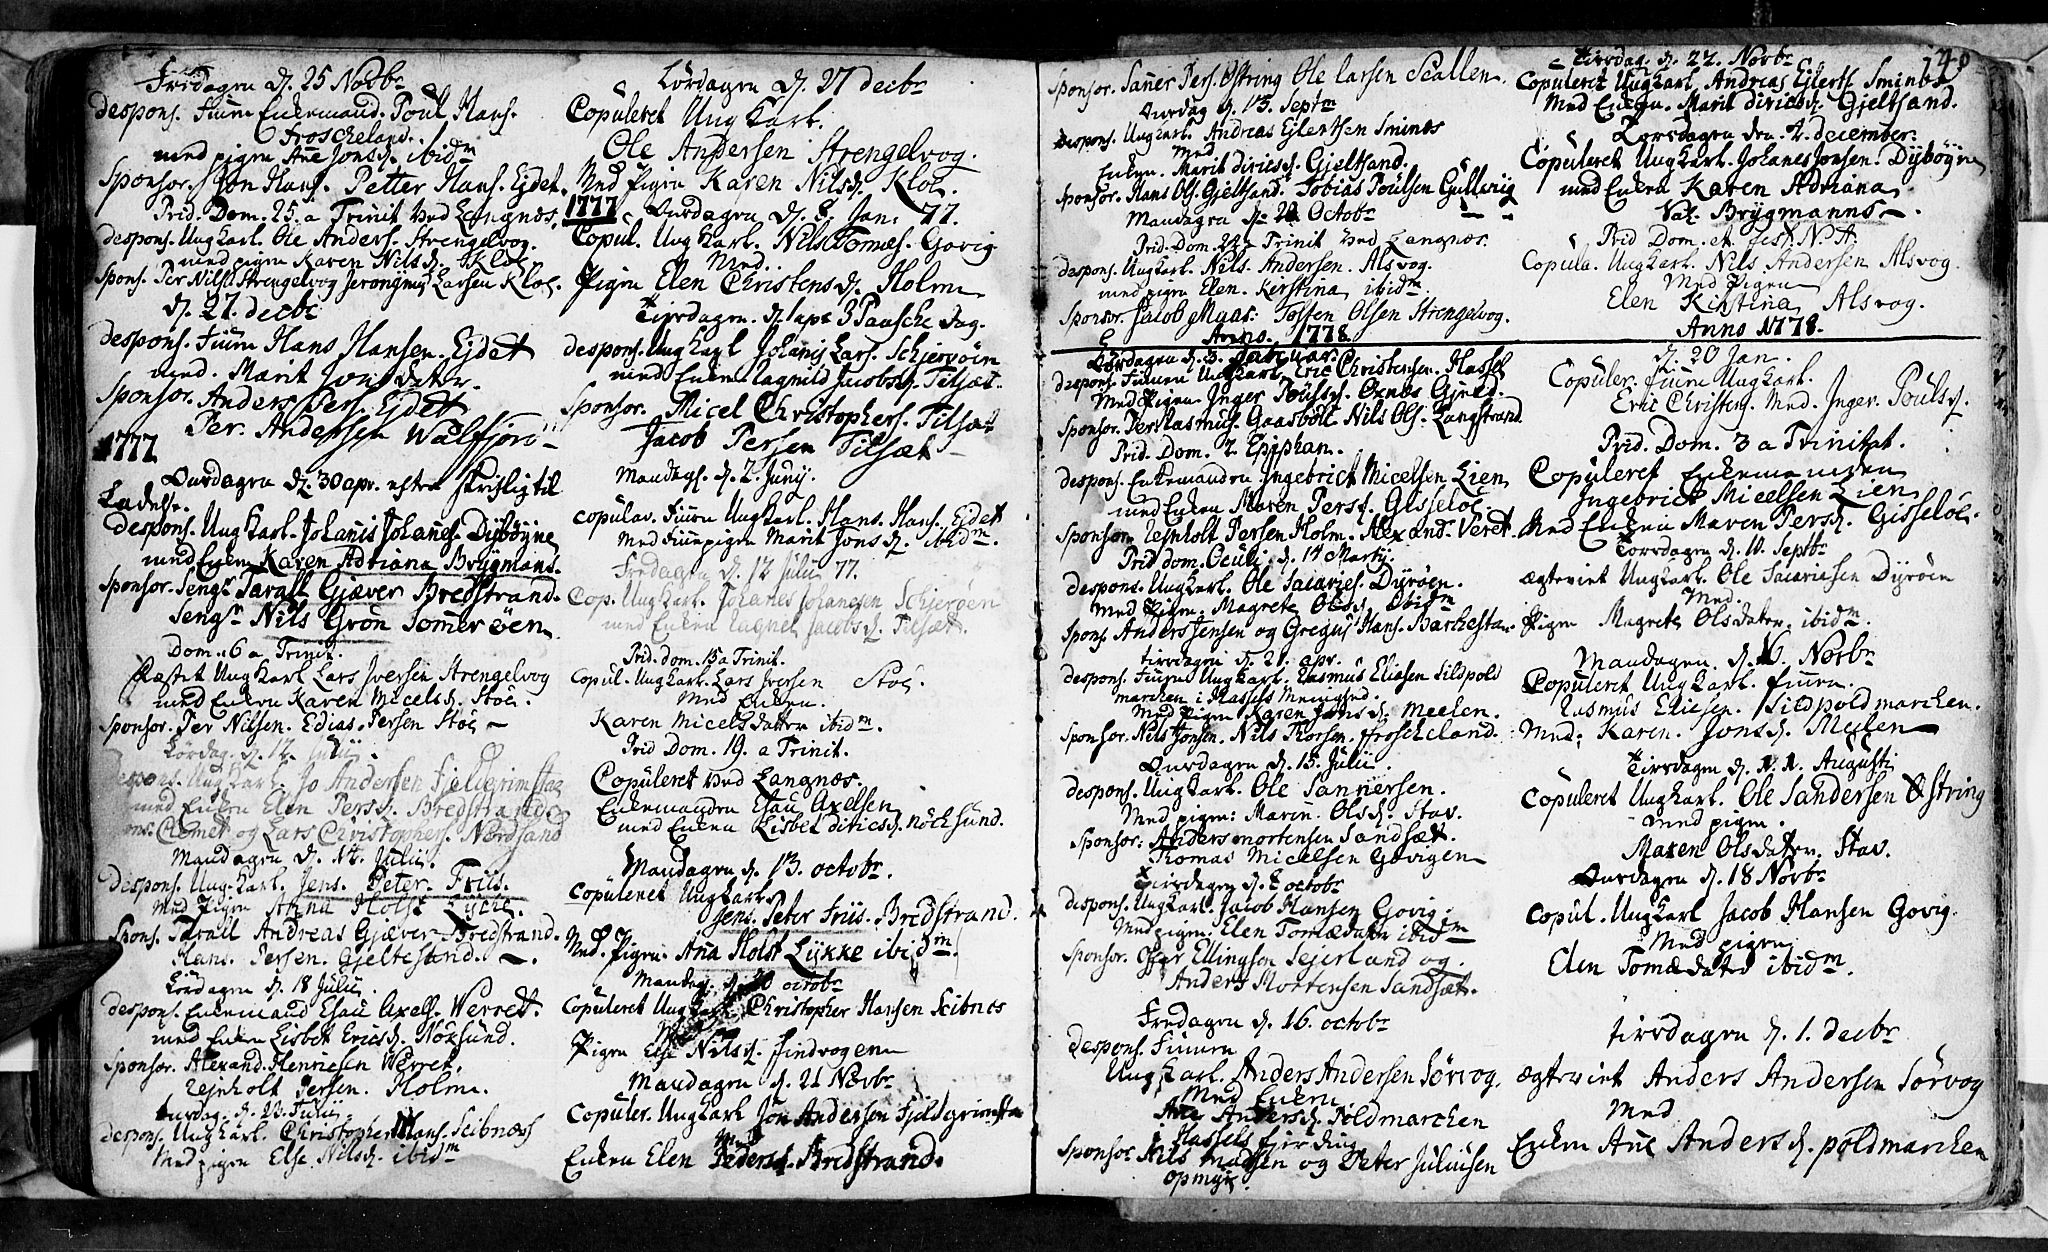 Fridagen d. 25 Novbr
despons. Fiurre Enkemand. Poul Hans.
Froscheland.
med pigen Ane Jonsd. ibidm
Sponsor. Jon Hans. Petter Hans. Ejdet.
Prid. Dom. 25. a Trinit ved Langnæs.
despons. Ungkarl. Ole Anders. Strengelvog.
med pigen Karen Nilsd. Kloe
Spons. Per Nilsen Strengelvog Jeronymus Larsen Kloe.
d. 27. decbr
despons. Hans Hansen. Ejdet
med. Marit Jonsdater.
Sponsor. Anders Pers. Ejdet
Per. Andersen Walfjord
1777
Onsdagen d. 30 apr. efter skriftlig til
ladelse.
despons. Ungkarl. Johanis Johanes. Dybøyne
med Enken Karen Adriana Brygmans.
Sponsor. Sengr Tarall Giæver Bredstrand.
Sengr Nils Grøn Somerøen
Dom. 6 a Trinit.
Fæstet Ungkarl Lars Iversen Strengelvog
med Enken Karen Micelsd. Stöe.
Sponsor. Per Nilsen. Edias Persen Stöe
Lørdag. d. 12 Julii.
Despons. Ungkarl. Jo Andersen Fjeldgrimstad
med Enken Elen Persd. Bredstrand
Clemet og Lars Christophers. Nordsand
Mandagen d. 14. Julii.
despons. Ungkarl. Jens. Peter. Friis.
Med Pigen Anna Holst Lykke.
Spons. Tarall Andreas Giæver Bredstrand.
Hans. Persen. Gjeltesand.
Lørdagen d. 18 Julii.
despons. Enkemand Esau Axels. Werret.
med Enken Lisbet Ericsd. Nöksund.
Sponsor. Alexand. Henricsen Werret.
Rejnholt Persen. Holm.
Onsdag. d. 23. Julii.
despons. Ungkarl. Christopher Hans. Scibness
Med pigen Else. Nilsd. ibidm
Lørdagen d. 27 decbr
Copuleret Ungkarl.
Ole Andersen Strengelvog.
Med Pigen Karen Nilsd. Kloe.
1777 Onsdagen d. 8. Jan. 77.
Copul. Ungkarl. Nils Tomæs. Govig
Med.
Pigen Elen Christensd. Holm
Tirsdagen. d. 1 apr. 3 Paasche dag.
despons. Ungkarl Johanis Lars. Schjerøen
med Enken Ragnild Jacobsd. Tilsæt.
Sponsor. Micel Christophers. Tilsæt
Jacob Persen Tilsæt
Mandags. d. 2. Junij.
copulav. Fiurre Ungkarl. Hans. Hans. Ejdet
Med pigen Marit Jonsd. ibidm.
Fredagen d. 12 Julii 77.
Cop. Ungkarl. Johanes Johansen Schjerøen
med Enken Ragnel Jacobsd. Tilsæt.
Prid. dom. 15 a Trinit.
Copul. Ungkarl. Lars Iversen Stöe.
Med Enken.
Karen Micelsdatter ibidm.
Prid Dom. 19. a Trinit.
Copuleret ved Langnæs.
Enkemanden Esau Axelsen
med Enken Lisbet Diricsd. Nöcksund.
Mandagen d. 13. octobr.
copuleret Ungkarl.
Jens. Peter Friis. Bredstrand.
Med. Pigen. Ana Holst Lykke ibidm.
Mandag. d. 20 octobr
Copuleret Ungkarl Christopher Hansen Scibnes
Pigen Else Nilsd. Findvogen
Mandagen d. 21 Novbr
Copuler. Ungkarl Jon Andersen Fjeldgrimsta
Med
Enken Elen Pedersd. Bredstrand.
149
Sponsor. Saner Pers. Østring Ole Larsen Scallen.
Onsdag d. 13. Septr
despons. Ungkarl. Andreas Ejlertsen Sminæs
Med
Enken. Marit Diricsd. Gjeltsand.
Sponsor. Hans Ols. Gjeltsand. Tobias Poulsen Gullviig
Mandagen d. 20 Octobr
Prid. Dom. 22. Trinit ved Langnæs.
despons. Ungkarl. Nils. Andersen. Alsvog.
med pigen Elen. Kerstina ibidm.
Sponsor. Jacob Maas. Tosten Olsen Strengelvog.
Anno. 1778.
Lørdagen d. 3. Januar.
despons. Fiurren Ungkarl Eric Christensen. Hassel
Med Pigen Inger Poulsd. Öxnes Gjeld.
Sponsor. Per Rasmus. Gaasbött Nils Ols. Langstrand.
Prid. Dom. 2 Epiphan.
despons. Enkemanden Ingebrict Micelsen Lien
med Enken Maren Persd. Gisseløe
Sponsor. Rejnholt Persen Holm. Alexand. Veret.
Prid dom. Oculi. d. 14 Martij
despons. Ungkarl. Ole Sacaries. Dyrøen.
med Pigen. Magrete Olsd. ibidm
Spons Anders Jensen og Gregus Hans. Barchesta.
tirsdagen d. 21. apr.
despons. Fiurre Ungkarl. Rasmus Eliasen Sildpold
marchen i Hassels Menighed.
Med Pigen Karen Jonsd. Meelen.
Sponsor. Nils Jonsen. Nils Thorsen. Froscheland.
Onsdagen d. 15. Julii.
despons. Ungkarl. Ole Sannersen.
Med pigen: Maren. Olsd. Stav.
Sponsor: Anders Mortensen Sandsæt.
Thomas Micelsen Govigen
Tirsdagen d. 8 octobr
despons. Ungkarl. Jacob Hansen Govig.
Med pigen. Elen Tomædater ibidm
Sponsor. Offer Ellingsen Sejerland og.
Anders Mortensen Sandsæt.
Fredagen d. 16. octobr
despons. Fiurren
Ungkarl. Anders Andersen Sørvog.
Med Enken
Ane Andersd. Poldmarchen
i Hassels fjerding
Sponsor. Nils Madsen og Peter Juluisen
Opmyr.
Tirsdag. d. 22. Novbr
Copuleret Ungkarl. Andreas Ejlerts. Smines
Med Enken. Marit Diricsd. Gjeltsand.
Torsdagen den. 2. december.
Copuleret Ungkarl. Johanes Jonsen. Dybøyne
med Enken Karen Adriana
Val. Brygmanns.
Prid Dom. et. fest. N. A
Copula. Ungkarl. Nils Andersen Alsvog.
Med Pigen
Elen Kirstina Alsvog.
Anno 1778.
d. 20 Jan.
Copuler. Fiurre Ungkarl.
Eric Christens. Med. Inger. Poulsd.
Prid. Dom. 3 a Trinitat.
Copuleret Enkemanden
Ingebrict Micelsen Lien
Med Enken Maren Persd. Gisseløe.
Torsdagen d. 10. Septbr
ægteviet Ungkarl Ole Sacariesen Dyrøen
Med.
Pigen Magrete Olsdater ibidm.
Mandagen. d. 16. Novbr
Copuleret Ungkarl. Fiurre.
Rasmus Eliesen. Sildpoldmarchen.
Med: Karen. Jonsd. Meelen
Tirsdagen d. 11. Augusti
Copuleret Ungkarl. Ole Sandersen Østring
med pigen.
Maren Olsdater. Stav.
Onsdagen d. 18 Novbr
Copul. Ungkarl Jacob Hansen Govig.
Med pigen
Elen Tomædater ibidm.
tirsdagen d. 1. decbr
ægteviet Anders Andersen Sørvog
Med
Enken Ane Andersd. poldmarchen